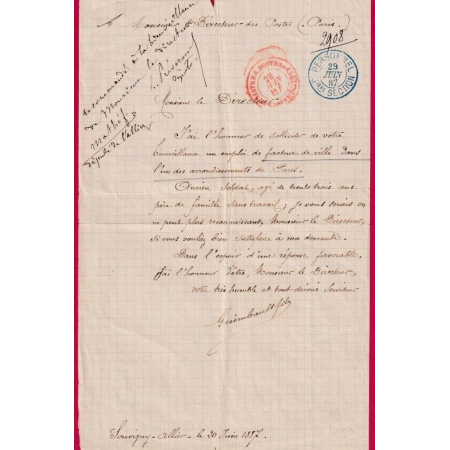 A Monsieur le Directeur des Postes (Paris)
2908
recommandé à la bienveillance
de Monsieur le directeur
Mathé
député de l'allier
PERSONNEL
29
JUIN
87
SECTION
Monsieur le Directeur
J'ai l'honneur de solliciter de votre
bienveillance un emploi de facteur de ville dans
l'un des arrondissements de Paris.
Ancien soldat, agé de trente trois ans
père de famille sans travail ; je vous serais on
ne peut plus reconnaissant, Monsieur le Directeur,
si vous vouliez bien satisfaire à ma demande.
Dans l'espoir d'une réponse favorable,
j'ai l'honneur d'être, Monsieur le Directeur,
votre très humble et tout dévoué Serviteur
Souvigny-Allier - le 20 Juin 1887.